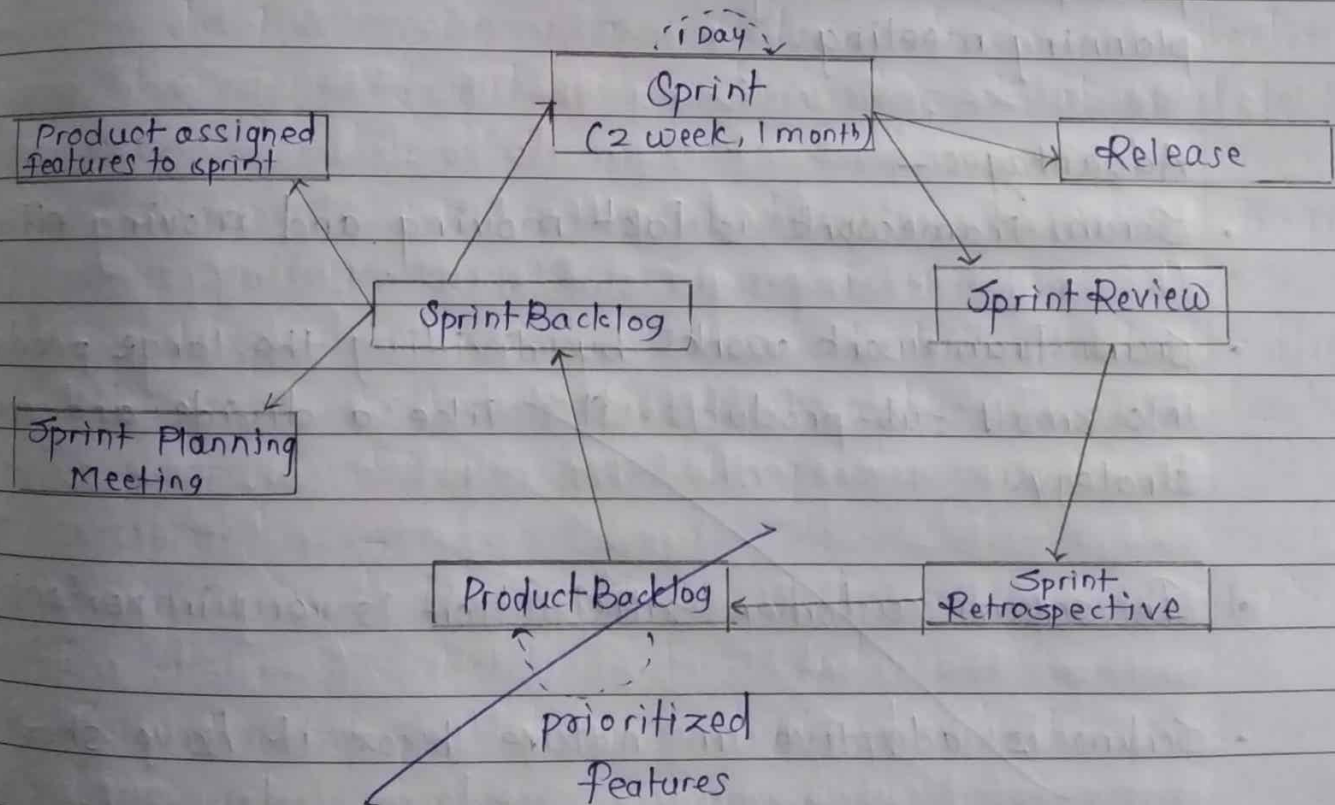 1 Day
Sprint
(2 week, 1 month)
Product assigned
features to sprint
Release
Sprint Backlog
Sprint Review
Sprint Planning
Meeting
Product Backlog
Sprint
Retrospective
prioritized
features